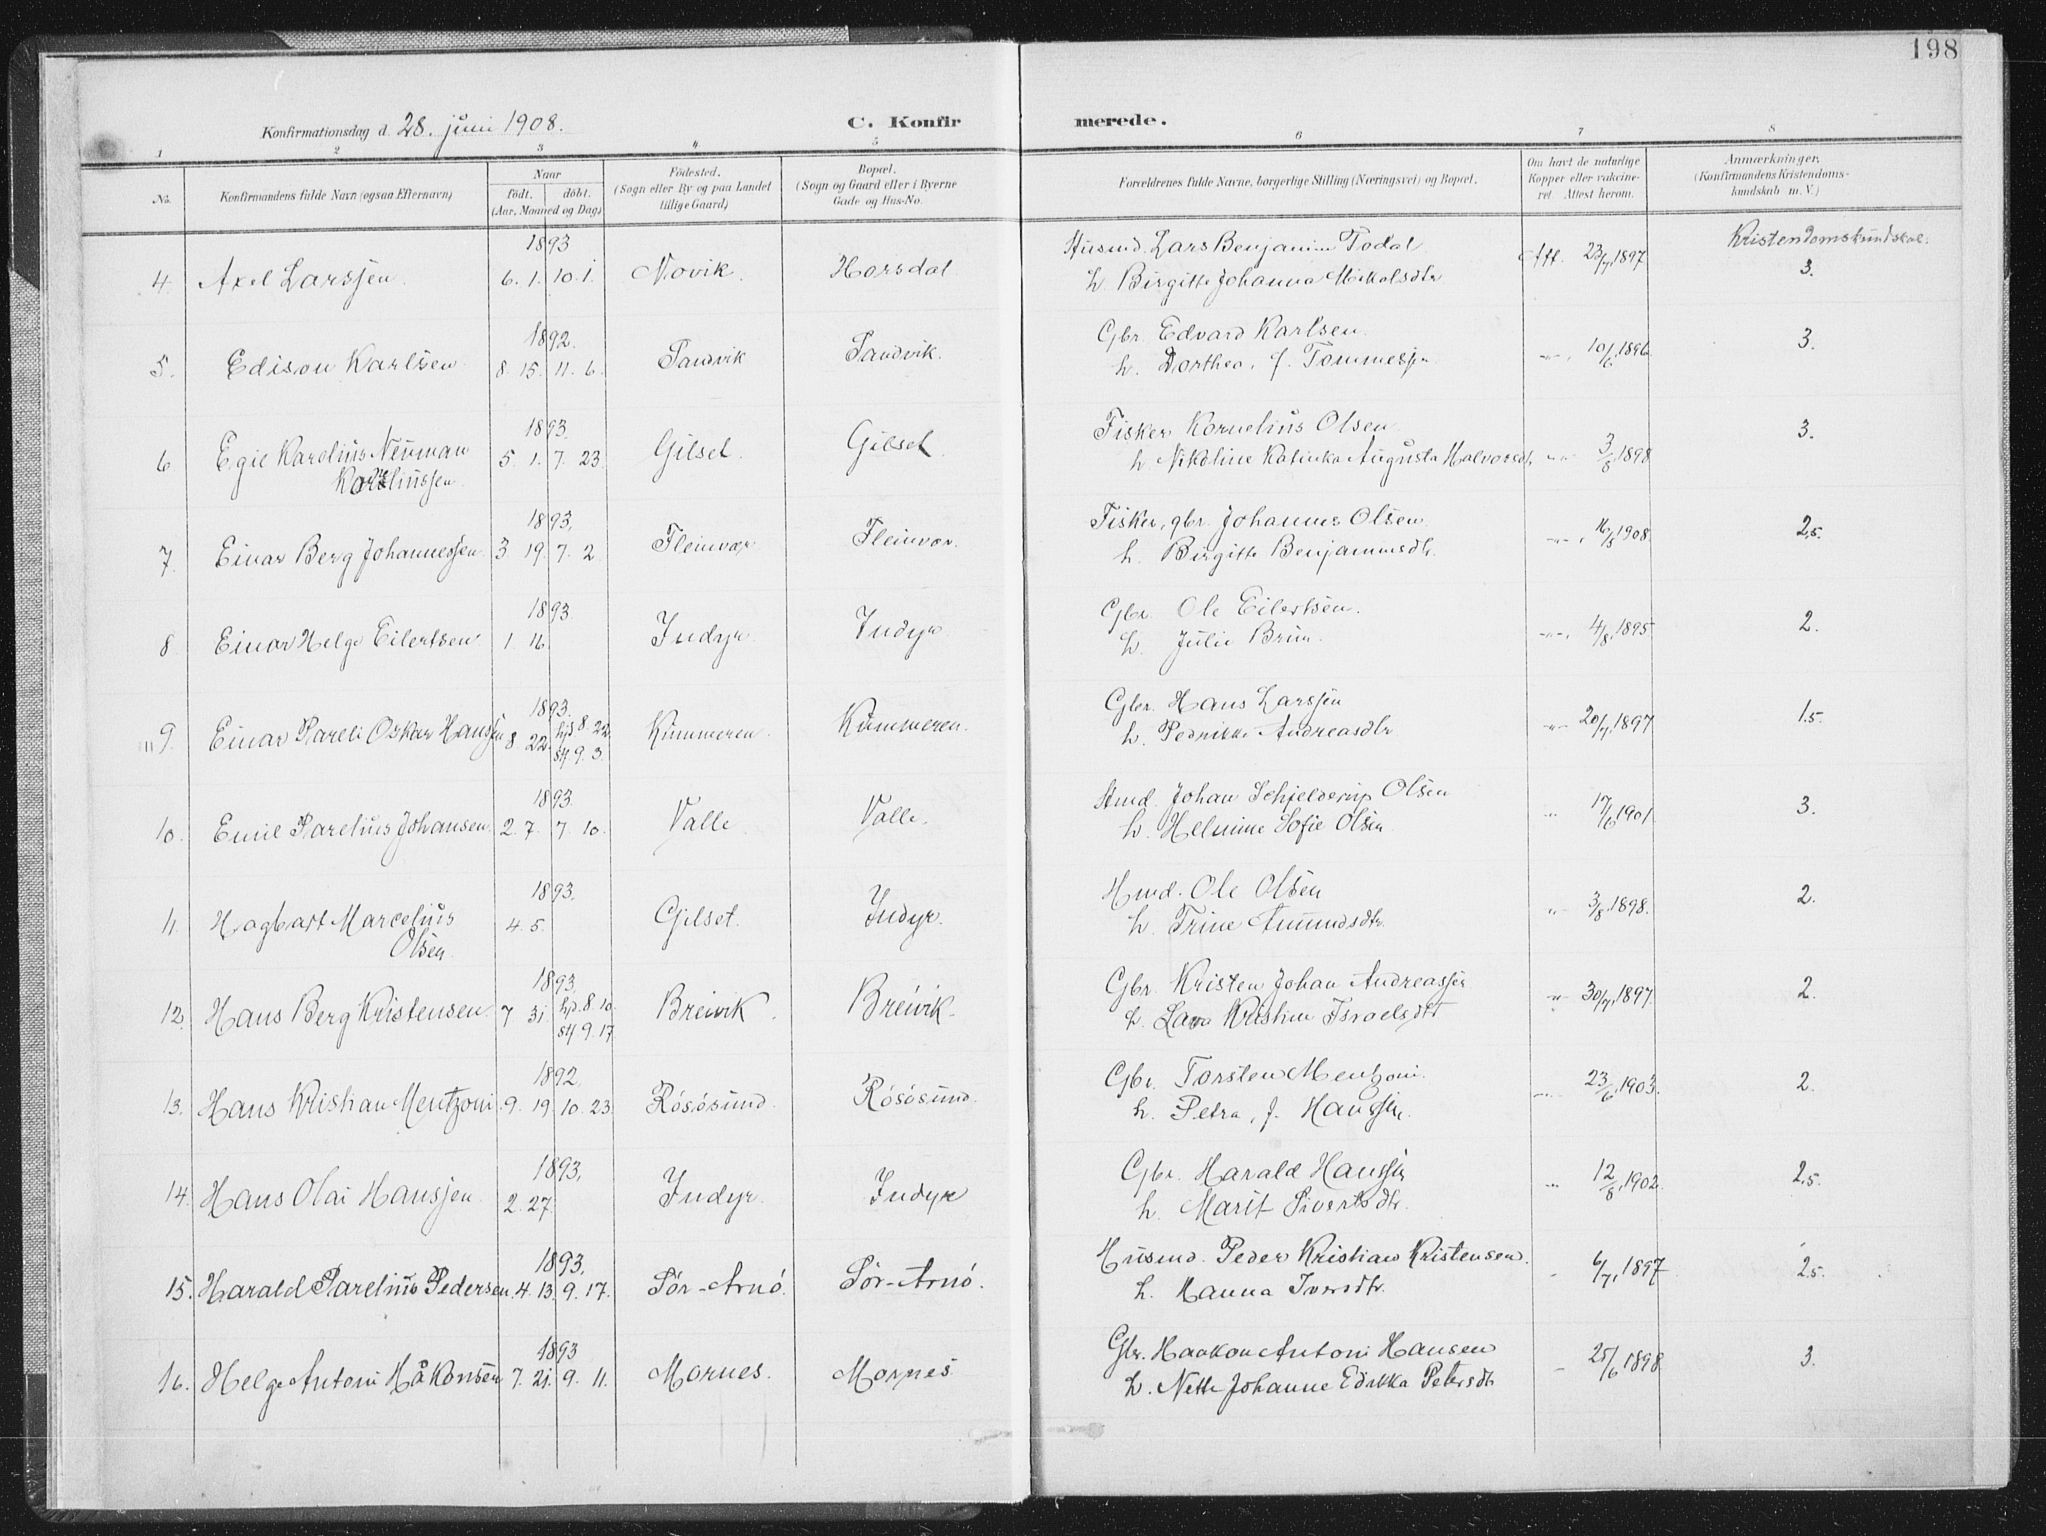 198
Konfirmationsdag d. 28. juni 1908.
C. Konfirmerede.
1 2 3 4 5 6 7 8
No.
Konfirmandens fulde Navn (ogsaa Efternavn)
Naar
födt. döbt.
(Aar, Maaned og Dag)
Födested.
(Sogn eller By og paa Landet
tillige Gaard)
Bopæl.
(Sogn og Gaard eller i Byerne
Gade og Hus-No.
Forældrenes fulde Navne, borgerlige Stilling (Næringsvei) og Bopæl.
Om havt de naturlige
Kopper eller vakcine-
ret. Attest herom.
Anmærkninger.
(Konfirmandens Kristendoms-
kundskab m. V.)
1893 Husmd. Lars Benjamin Todal Kristendomskundskab.
4. Axel Larssen 6. 1. 10. 1. Novik. Horsdal Att. 23/7 1897 3.
h. Birgitte Johanna Mikalsdtr
1892. Gbr. Edvard Karlsen.
5. Edison Karlsen 8. 15. 11. 6. Sandvik Sandvik. 10/6 1896 3.
h. Dorthea, f. Tommessen
1893. Fisker Kornelius Olsen
6. Egil Karelius Neuman 5. 1. 7. 23. Gilset. Gilset 3/8 1898 3.
Korneliussen h. Nikoline Katinka Augusta Halvorsdtr
1893. Fisker, gbr. Johannes Olsen
7. Einar Berg Johannessen 3 19. 7. 2. Fleinvær Fleinvær. 16/5 1908. 2,5.
h. Birgitte Benjaminsdtr.
1893 Gbr. Ole Eilertsen.
8. Einar Helge Eilertsen 1. 16. Indyr Indyr 4/8 1895 2.
h. Julie Brun.
1893. Gbr. Hans Larssen
9. Einar Pareli Oskar Hanssen 8. 22. hjd 8. 22. Kummeren. Kummeren. 20/7 1897 1.5.
st 9. 3. h. Pedrikke Andreasdtr
1893. Hmd. Johan Schjelderup Olsen
10. Emil Parelius Johansen. 2. 7. 7. 10. Valle Valle. 17/6 1901 3.
h. Helmine Sofie Olsen
1893. Hmd. Ole Olsen
11. Hagbart Marcelius 4. 5. Gjilset. Indyr. 3/8 1898. 2.
Olsen h. Trine Amundsdtr.
1893. Gbr. Kristen Johan Andreassen
12 Hans Berg Kristensen 7 31. hjd. 8. 10. Breivik. Breivik. 30/7 1897. 2.
st 9. 17. h. Lara Kristine Israelsdtr
1892. Gbr. Torsten Mentzoni.
13. Hans Kristian Mentzoni. 9. 19. 10. 23. Rösösund. Rösösund. 23/6 1903. 2.
h. Petra, f. Hanssen.
1893. Gbr. Harald Hanssen
14. Hans Olai Hanssen 2. 27. Indyr. Indyr 12/8 1902. 2,5.
h. Marit Sivertsdtr.
1893. Husmd. Peder Kristian Kristensen.
15. Harald Parelius Pedersen. 4. 13. 9. 17. Sör-Arnö. Sör-Arnö. 6/7 1897. 2.5.
h. Hanna Iversdtr.
1893 Gbr. Haakon Antoni Hansen
16. Helge Antoni Håkonsen 7. 21. 9. 11. Mornes. Mornes. 25/6 1898. 3.
h. Nette Johanne Edrikka Petersdtr